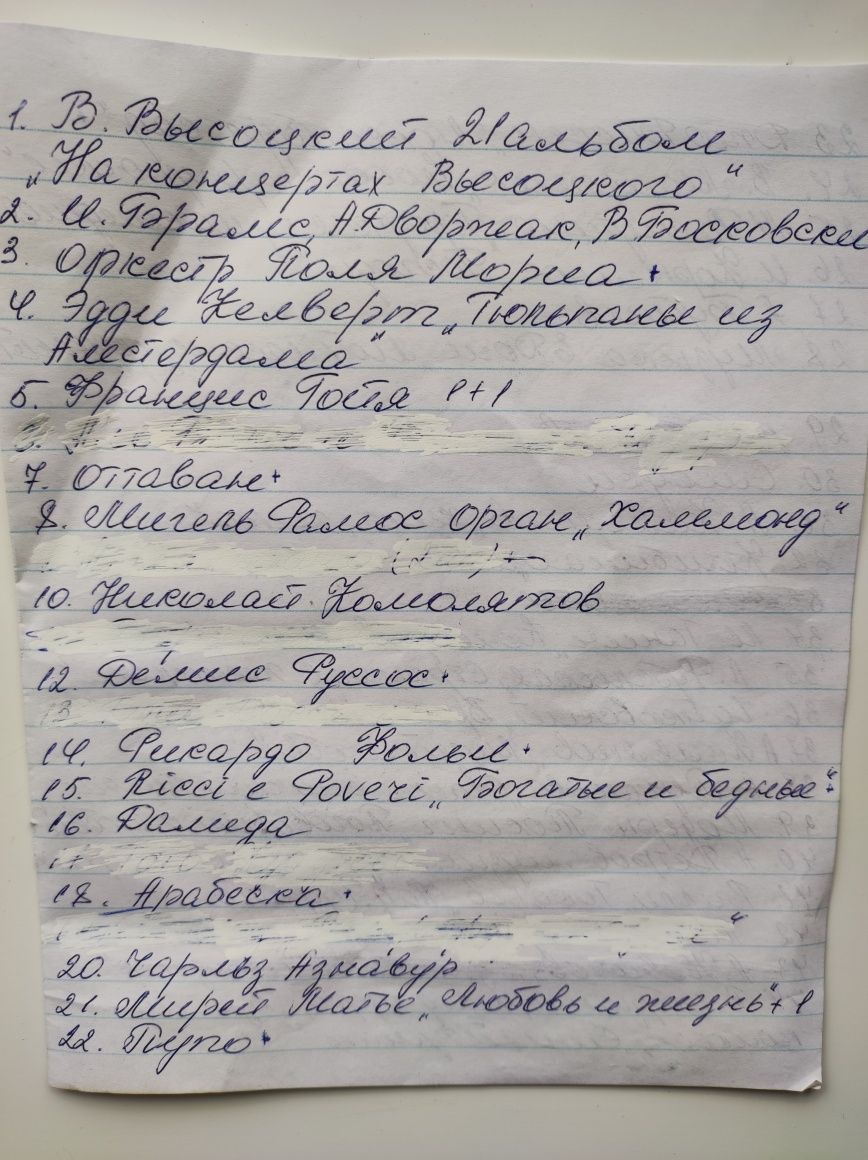 1. В. Высоцкий 21 альбом
„На концертах Высоцкого“
2. И. Брамс, А. Дворжак, В Босковски
3. Оркестр Поля Мориа +
4. Эдди Келверт „Тюльпаны из
Амстердама“
5. Францис Гойя 1+1
7. Оттаван +
8. Мигель Рамос орган „Хаммонд“
10. Николай Комолятов
12. Де́мис Руссос +
14. Рикардо Фольи +
15. Ricci e Poveri „Богатые и бедные“ +
16. Далида
18. Арабеска +
20. Чарльз Азна́ву́р
21. Мирей Матье „Любовь и жизнь“ + 1
22. Пупо +